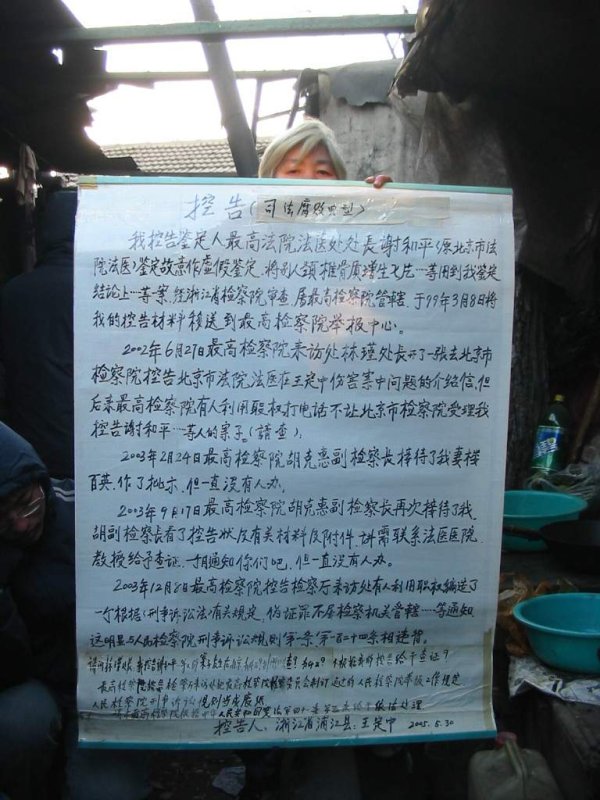 控告（司法腐败典型）
我控告鉴定人最高法院法医处处長謝和平（原北京市法
院法医）鉴定故意作虚假鉴定，将别人頸椎骨质增生飞片…等用到我鉴定
结论上…等案，经浙江省检察院审查，属最高检察院管辖，于99年3月8日将
我的控告材料移送到最高检察院举报中心。
2002年6月27日最高检察院来访处林瑾处長开了一张去北京市
检察院控告北京市法院法医在王定中伤害案中问题的介绍信，但
后来最高检察院有人利用职权打电话不让北京市检察院受理我
控告谢和平…等人的案子。（請查）；
2003年2月24日最高检察院胡克惠副检察長接待了我妻
百英，作了批示，但一直没有人办。
2003年9月17日最高检察院胡克惠副检察長再次接待了我，
胡副检察長看了控告状及有关材料及附件，讲需联系法医医院
教授给予查证，一月通知你们吧，但一直没有人办。
2003年12月8日最高检察院控告检察厅来访处有人利用职权编造了
一个根据《刑事诉讼法》有关规定，伪证罪不属检察机关管辖…等通知，
这明显与人民检察院刑事诉讼规则第一条、第一百二十四条相违背。
给予查证？
人民检察院举报工作规定
人民检察院刑事诉讼规则
依法处理
控告人：浙江省浦江县：王定中 2005.5.30